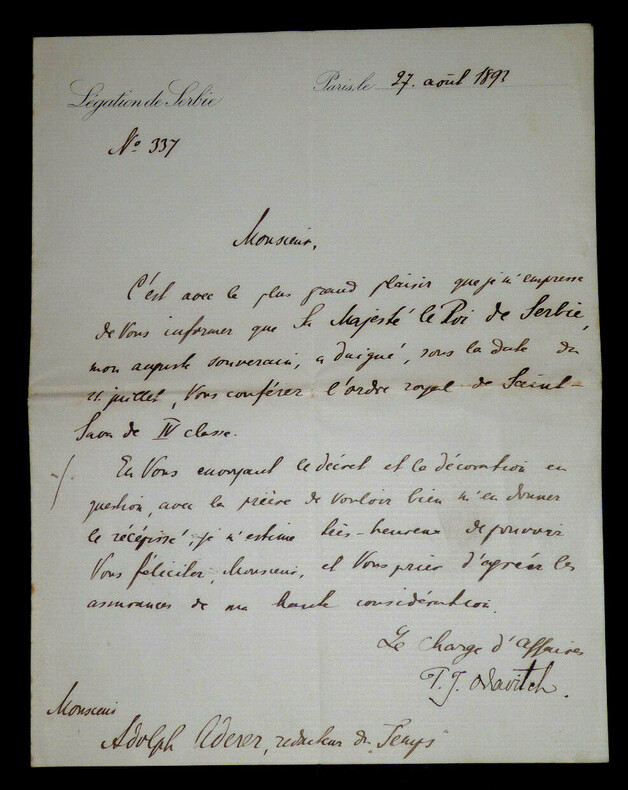 Légation de Serbie
Paris, le 27. août 1892
Nº 337
Monsieur,
C'est avec le plus grand plaisir que je m'empresse
de Vous informer que Sa Majesté le Roi de Serbie,
mon auguste souverain, a daigné, sous la date du
21 juillet, Vous conférer l'ordre royal de Saint-
Sava de IV classe.
En Vous envoyant le décret et la décoration en
question, avec la prière de vouloir bien m'en donner
le récépissé, je m'estime très-heureux de pouvoir
Vous féliciter, Monsieur, et Vous prier d'agréer les
assurances de ma haute considération.
Le Chargé d'affaires
T. J.
Monsieur
Adolph Aderer, rédacteur du Temps